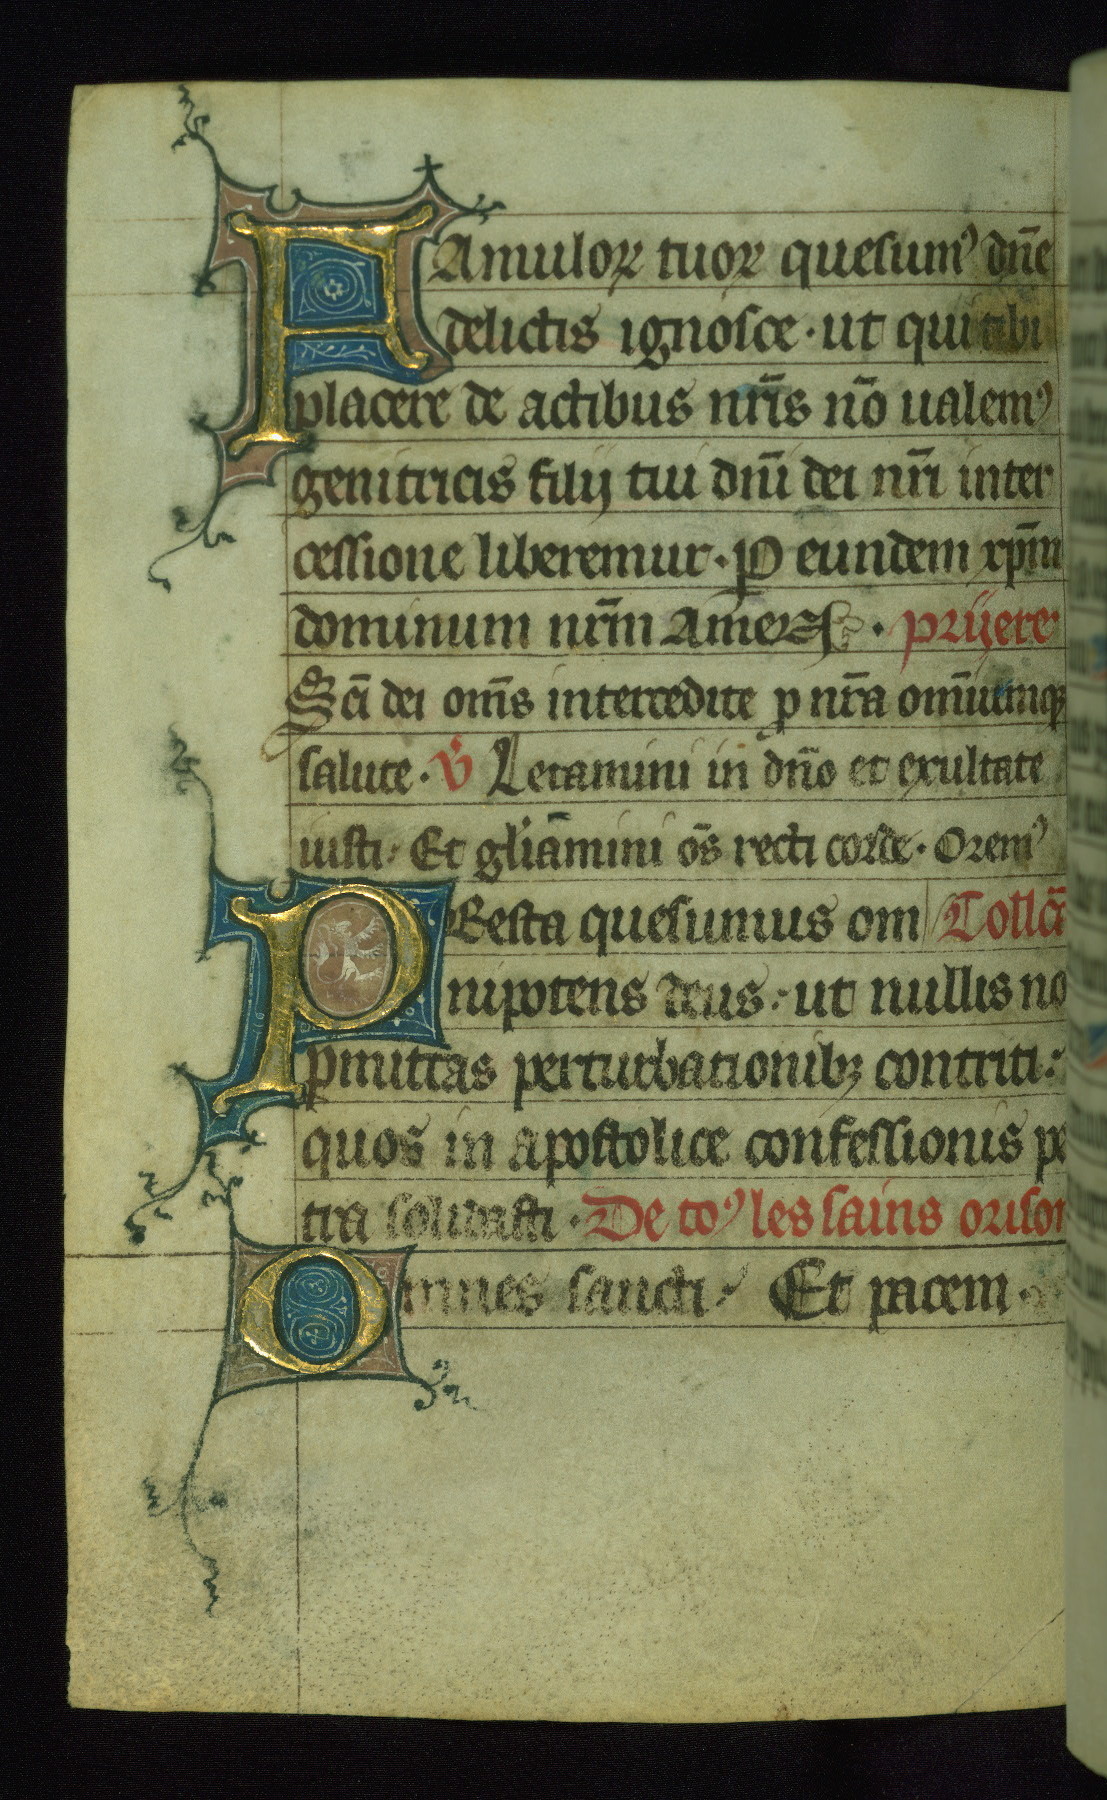 FAmuloꝝ tuoꝝ quesumꝰ dn̄e
delictis ignosce · ut qui tibi
placere de actibus nr̄is nō ualemꝰ
genitricis filij tui dn̄i dei nr̄i inter
cessione liberemur · P eundem xp̄m
dominum nr̄m Amen · prijere
Sc̄i dei om̄s intercedite ꝓ nr̄a omn̄iumqꝫ
salute · v̄ Letamini in dn̄o et exultate
iusti · Et gl̄iamini ōs recti corde · Oremꝰ
PResta quesumus om Collc̄a
nipotens deus · ut nullis no
ꝑmittas perturbationibꝫ contriti ·
quos in apostolice confessionis pe
tra solidasti · De toꝰ les sains orison
Omnes sancti · Et pacem ·